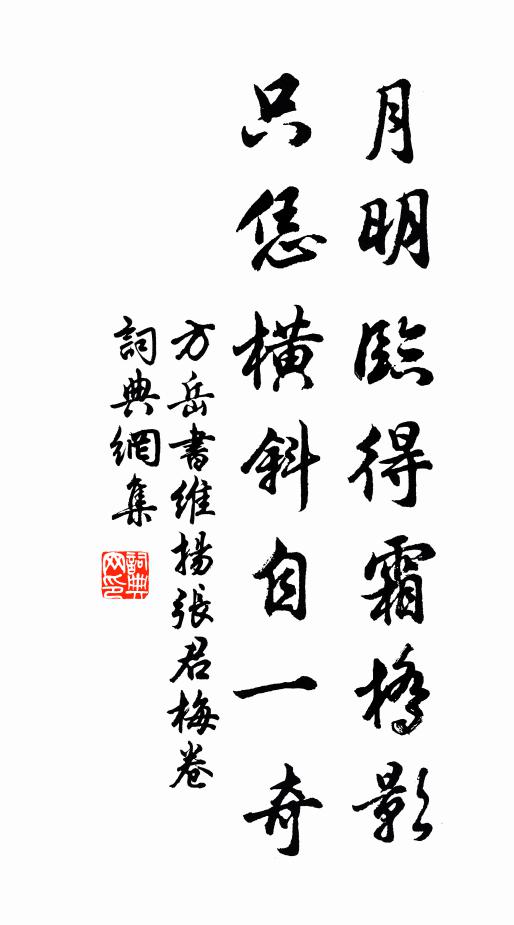 月明臨得霜橋影
只恁橫斜自一奇
方岳書維揚張君梅卷
詞典網集
詞典網印